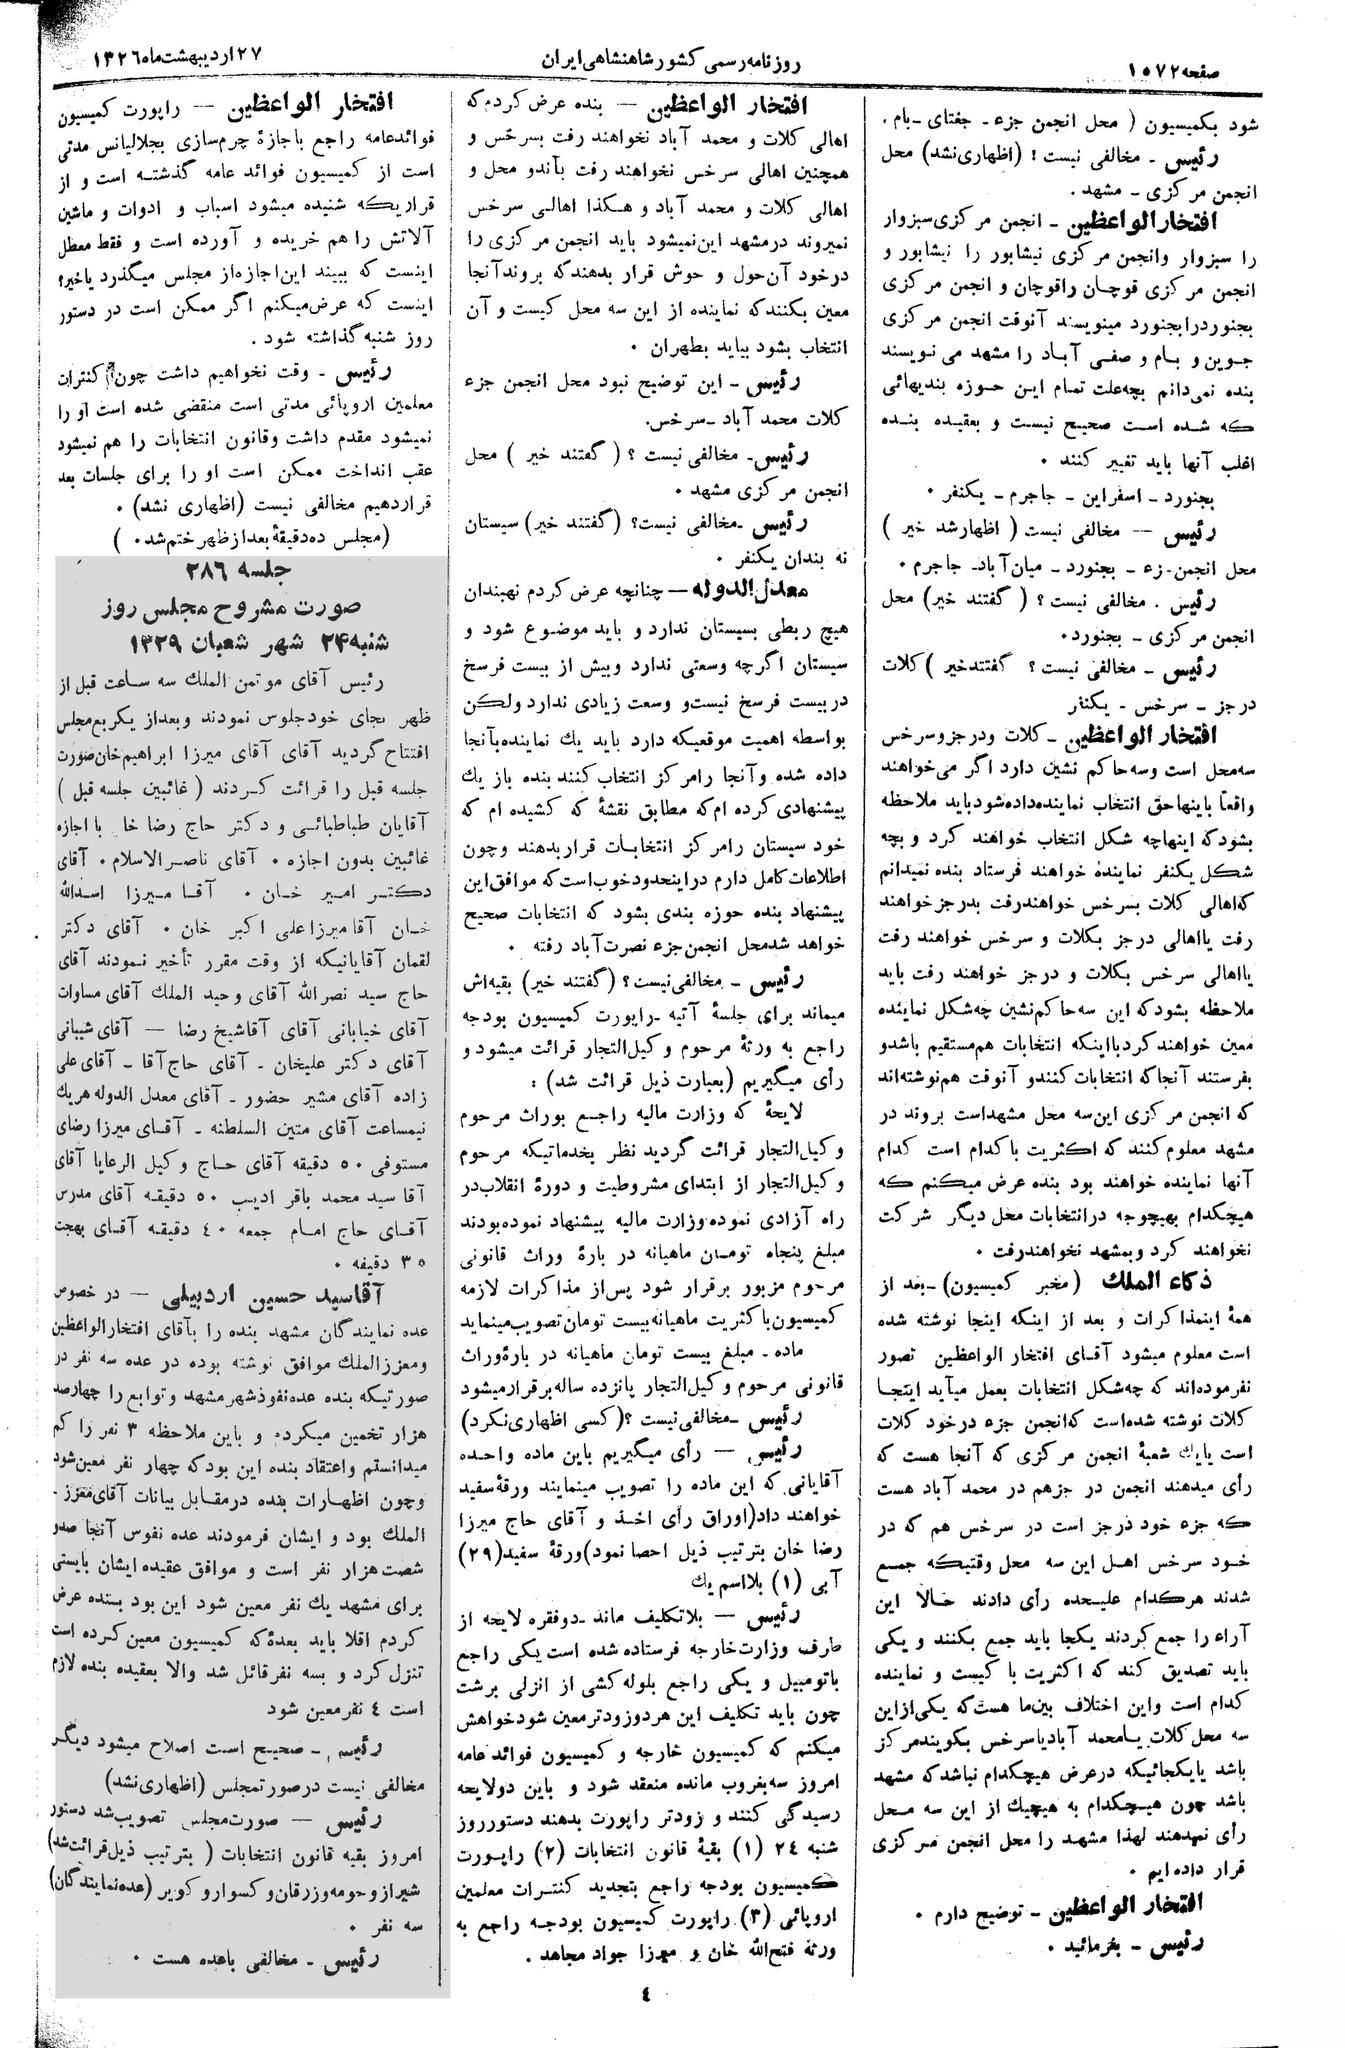 صفحه ۱۵۷۲
روزنامه رسمی کشور شاهنشاهی ایران
۲۷ اردیبهشت ماه ۱۳۲۶
شود بکمیسیون ( محل انجمن جزء ـ جغتای ـ بام .
رئیس ـ مخالفی نیست ؛ (اظهاری نشد) محل
انجمن مرکزی ـ مشهد .
افتخار الواعظین ـ انجمن مرکزی سبزوار
را سبزوار وانجمن مرکزی نیشابور را نیشابور و
انجمن مرکزی قوچان راقوچان و انجمن مرکزی
بجنوردرابجنورد مینویسند آنوقت انجمن مرکزی
جوین و بام و صفی آباد را مشهد می نویسند
بنده نمی‌دانم بچه علت تمام این حوزه بندیهائی
که شده است صحیح نیست و بعقیده بنده
اغلب آنها باید تغییر کنند .
بجنورد ـ اسفراین ـ جاجرم ـ یکنفر .
رئیس — مخالفی نیست ( اظهار شد خیر )
محل انجمن‌ـ‌زء ـ بجنورد ـ میان‌آباد ـ جاجرم .
رئیس . مخالفی نیست ؟ ( گفتند خیر) محل
انجمن مرکزی ـ بجنورد .
رئیس ـ مخالفی نیست ؟ گفتند خیر )کلات
درجز ـ سرخس ـ یکنفر
افتخار الواعظین ـ کلات ودرجز وسرخس
سه محل است وسه حاکم نشین دارد اگر می‌خواهند
واقعا باینها حق انتخاب نماینده داده شود باید ملاحظه
بشود که اینها چه شکل انتخاب خواهند کرد و بچه
شکل یکنفر نمایندهٔ خواهند فرستاد بنده نمیدانم
که اهالی کلات بسرخس خواهند رفت بدرجز خواهند
رفت یا اهالی درجز بکلات و سرخس خواهند رفت
یا اهالی سرخس بکلات و درجز خواهند رفت باید
ملاحظه بشود که این سه حاکم نشین چه شکل نماینده
معین خواهند کرد با اینکه انتخابات هم مستقیم باشد و
بفرستند آنجا که انتخابات کنند و آنوقت هم نوشته‌اند
که انجمن مرکزی این سه محل مشهد است بروند در
مشهد معلوم کنند که اکثریت با کدام است کدام
آنها نماینده خواهند بود بنده عرض میکنم که
هیچکدام بهیچوجه در انتخابات محل دیگر شرکت
نخواهند کرد و بمشهد نخواهند رفت .
ذکاء الملك (مخبر کمیسیون) ـ بعد از
همهٔ اینمذاکرات و بعد از اینکه اینجا نوشته شده
است معلوم میشود آقای افتخار الواعظین تصور
نفرموده‌اند که چه شکل انتخابات بعمل میآید اینجا
کلات نوشته شده است که انجمن جزء در خود کلات
است یایك شعبهٔ انجمن مرکزی که آنجا هست که
رأی میدهند انجمن در جزهم در محمد آباد هست
که جزء خود درجز است در سرخس هم که در
خود سرخس اهل این سه محل وقتیکه جمع
شدند هرکدام علیحده رأی دادند حالا این
آراء را جمع کردند یکجا باید جمع بکنند و یکی
باید تصدیق کند که اکثریت با کیست و نماینده
کدام است واین اختلاف بین ما هست که یکی از این
سه محل کلات یا محمد آباد یا سرخس بگویند مرکز
باشد یا یکجائیکه در عرض هیچکدام نباشد که مشهد
باشد چون هیچکدام به هیچیك از این سه محل
رأی نمیدهند لهذا مشهد را محل انجمن مرکزی
قرار داده ایم .
افتخار الواعظین ـ توضیح دارم .
رئیس ـ بفرمائید .
افتخار الواعظین — بنده عرض کردم که
اهالی کلات و محمد آباد نخواهند رفت بسرخس و
همچنین اهالی سرخس نخواهند رفت بآندو محل و
اهالی کلات و محمد آباد و هکذا اهالی سرخس
نمیروند در مشهد این نمیشود باید انجمن مرکزی را
در خود آن حول و حوش قرار بدهند که بروند آنجا
معین بکنند که نماینده از این سه محل کیست و آن
انتخاب بشود بیاید بطهران .
رئیس ـ این توضیح نبود محل انجمن جزء
کلات محمد آباد ـ سرخس.
رئیس ـ مخالفی نیست ؟ ( گفتند خیر ) محل
انجمن مرکزی مشهد .
رئیس ـ مخالفی نیست؟ (گفتند خیر) سیستان
نه بندان یکنفر .
معدل الدوله — چنانچه عرض کردم نهبندان
هیچ ربطی بسیستان ندارد و باید موضوع شود و
سیستان اگرچه وسعتی ندارد وبیش از بیست فرسخ
در بیست فرسخ نیست و وسعت زیادی ندارد ولکن
بواسطه اهمیت موقعیکه دارد باید یك نماینده بآنجا
داده شده و آنجا را مرکز انتخاب کنند بنده باز یك
پیشنهادی کرده ام که مطابق نقشهٔ که کشیده ام که
خود سیستان را مرکز انتخابات قرار بدهند وچون
اطلاعات کامل دارم در اینحدود خوب است که موافق این
پیشنهاد بنده حوزه بندی بشود که انتخابات صحیح
خواهد شد محل انجمن جزء نصرت آباد رفته .
رئیس ـ مخالفی نیست؟ (گفتند خیر) بقیه‌اش
میماند برای جلسهٔ آتیه ـ راپورت کمیسیون بودجه
راجع به ورثهٔ مرحوم وکیل التجار قرائت میشود و
رأی میگیریم (بعبارت ذیل قرائت شد) :
لایحهٔ که وزارت مالیه راجع بوراث مرحوم
وکیل التجار قرائت گردید نظر بخدماتیکه مرحوم
وکیل التجار از ابتدای مشروطیت و دورهٔ انقلاب در
راه آزادی نموده وزارت مالیه پیشنهاد نموده بودند
مبلغ پنجاه تومان ماهیانه در بارهٔ وراث قانونی
مرحوم مزبور برقرار شود پس از مذاکرات لازمه
کمیسیون با کثریت ماهیانه بیست تومان تصویب مینماید
ماده ـ مبلغ بیست تومان ماهیانه در بارهٔ وراث
قانونی مرحوم وکیل التجار پانزده ساله برقرار میشود
رئیس ـ مخالفی نیست ؟ (کسی اظهاری نکرد)
رئیس — رأی میگیریم باین ماده واحده
آقایانی که این ماده را تصویب مینمایند ورقهٔ سفید
خواهند داد (اوراق رأی اخذ و آقای حاج میرزا
رضا خان بترتیب ذیل احصا نمود) ورقهٔ سفید (۲۹)
آبی (۱) بلا اسم یك
رئیس — بلاتکلیف ماند ـ دوفقره لایحه از
طرف وزارت خارجه فرستاده شده است یکی راجع
باتومبیل و یکی راجع بلوله کشی از انزلی برشت
چون باید تکلیف این هر دو زودتر معین شود خواهش
میکنم که کمیسیون خارجه و کمیسیون فوائد عامه
امروز سه بغروب مانده منعقد شود و باین دولایحه
رسیدگی کنند و زودتر راپورت بدهند دستور روز
شنبه ۲۴ (۱) بقیهٔ قانون انتخابات (۲) راپورت
کمیسیون بودجه راجع بتجدید کنترات معلمین
اروپائی (۳) راپورت کمیسیون بودجه راجع به
ورثهٔ فتح الله خان و میرزا جواد مجاهد .
افتخار الواعظین — راپورت کمیسیون
فوائد عامه راجع باجازهٔ چرم سازی بجلالیانس مدتی
است از کمیسیون فوائد عامه گذشته است و از
قراریکه شنیده میشود اسباب و ادوات و ماشین
آلاتش را هم خریده و آورده است و فقط معطل
اینست که ببیند این اجازه از مجلس میگذرد یا خیر؟
اینست که عرض میکنم اگر ممکن است در دستور
روز شنبه گذاشته شود .
رئیس ـ وقت نخواهیم داشت چون کنترات
معلمین اروپائی مدتی است منقضی شده است او را
نمیشود مقدم داشت وقانون انتخابات را هم نمیشود
عقب انداخت ممکن است او را برای جلسات بعد
قراردهیم مخالفی نیست (اظهاری نشد) .
(مجلس ده دقیقهٔ بعد از ظهر ختم شد . )
جلسه ۲۸۶
صورت مشروح مجلس روز
شنبه ۲۴ شهر شعبان ۱۳۲۹
رئیس آقای موتمن الملك سه ساعت قبل از
ظهر بجای خود جلوس نمودند وبعد از یکربع مجلس
افتتاح گردید آقای آقای میرزا ابراهیم خان صورت
جلسه قبل را قرائت کردند ( غائبین جلسه قبل )
آقایان طباطبائی و دکتر حاج رضا خا با اجازه
غائبین بدون اجازه . آقای ناصر الاسلام . آقای
دکتر امیر خان . آقا میرزا اسدالله
خان آقا میرزا علی اکبر خان . آقای دکتر
لقمان آقایانیکه از وقت مقرر تأخیر نمودند آقای
حاج سید نصر الله آقای وحید الملك آقای مساوات
آقای خیابانی آقای آقاشیخ رضا — آقای شیبانی
آقای دکتر علیخان ـ آقای حاج آقا ـ آقای علی
زاده آقای مشیر حضور ـ آقای معدل الدوله هریك
نیمساعت آقای متین السلطنه ـ آقای میرزا رضای
مستوفی ۵۰ دقیقه آقای حاج وکیل الرعایا آقای
آقا سید محمد باقر ادیب ۵۰ دقیقه آقای مدرس
آقای حاج امام جمعه ۴۰ دقیقه آقای بهجت
۳۵ دقیقه .
آقا سید حسین اردبیلی — در خصوص
عده نمایندگان مشهد بنده را بآقای افتخار الواعظین
ومعزز الملك موافق نوشته بوده در عده سه نفر در
صورتیکه بنده عده نفوذ شهر مشهد و توابع را چهار صد
هزار تخمین میکردم و باین ملاحظه ۳ نفر را کم
میدانستم واعتقاد بنده این بود که چهار نفر معین شود
وچون اظهارات بنده در مقابل بیانات آقای معزز ـ
الملك بود و ایشان فرمودند عده نفوس آنجا صد و
شصت هزار نفر است و موافق عقیده ایشان بایستی
برای مشهد یك نفر معین شود این بود بنده عرض
کردم اقلا باید بعدهٔ که کمیسیون معین کرده است
تنزل کرد و بسه نفر قائل شد والا بعقیده بنده لازم
است ۴ نفر معین شود
رئیس ـ صحیح است اصلاح میشود دیگر
مخالفی نیست در صورتمجلس (اظهاری نشد)
رئیس — صورت مجلس تصویب شد دستور
امروز بقیه قانون انتخابات ( بترتیب ذیل قرائت شد)
شیراز وحومه وزرقان و کسوار و کویر (عده نمایندگان)
سه نفر .
رئیس ـ مخالفی باعده هست .
۴